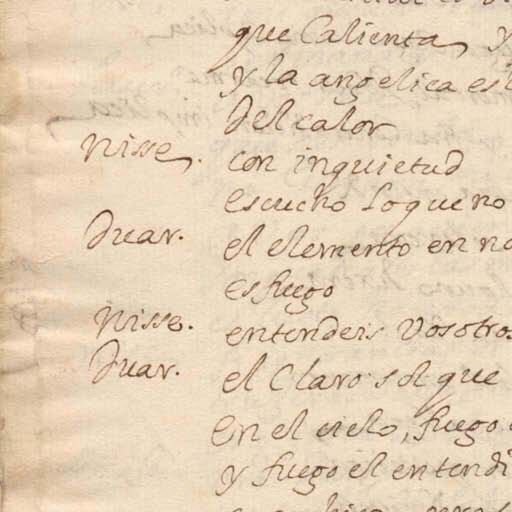 que Calienta, y
y la angelica es
del calor
Nisse. con inquietud
escucho lo que no
Duar. el elemento en
es fuego
Nisse. entendeis Vosotros
Duar. el Claro sol que
En el cielo, fuego
y fuego el entendi